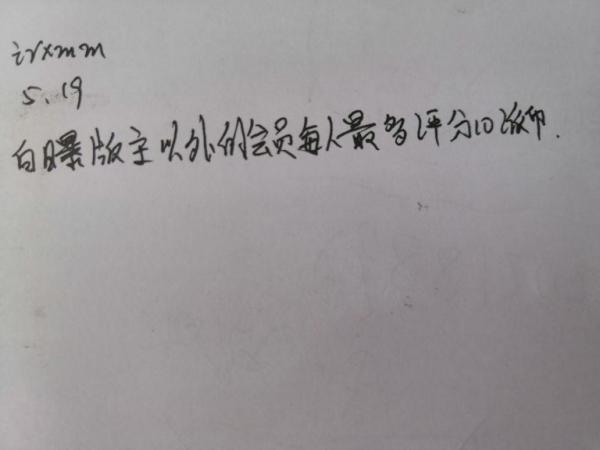 irxmm
5.19
自曝版主以外的会员每人最多评分10派币.